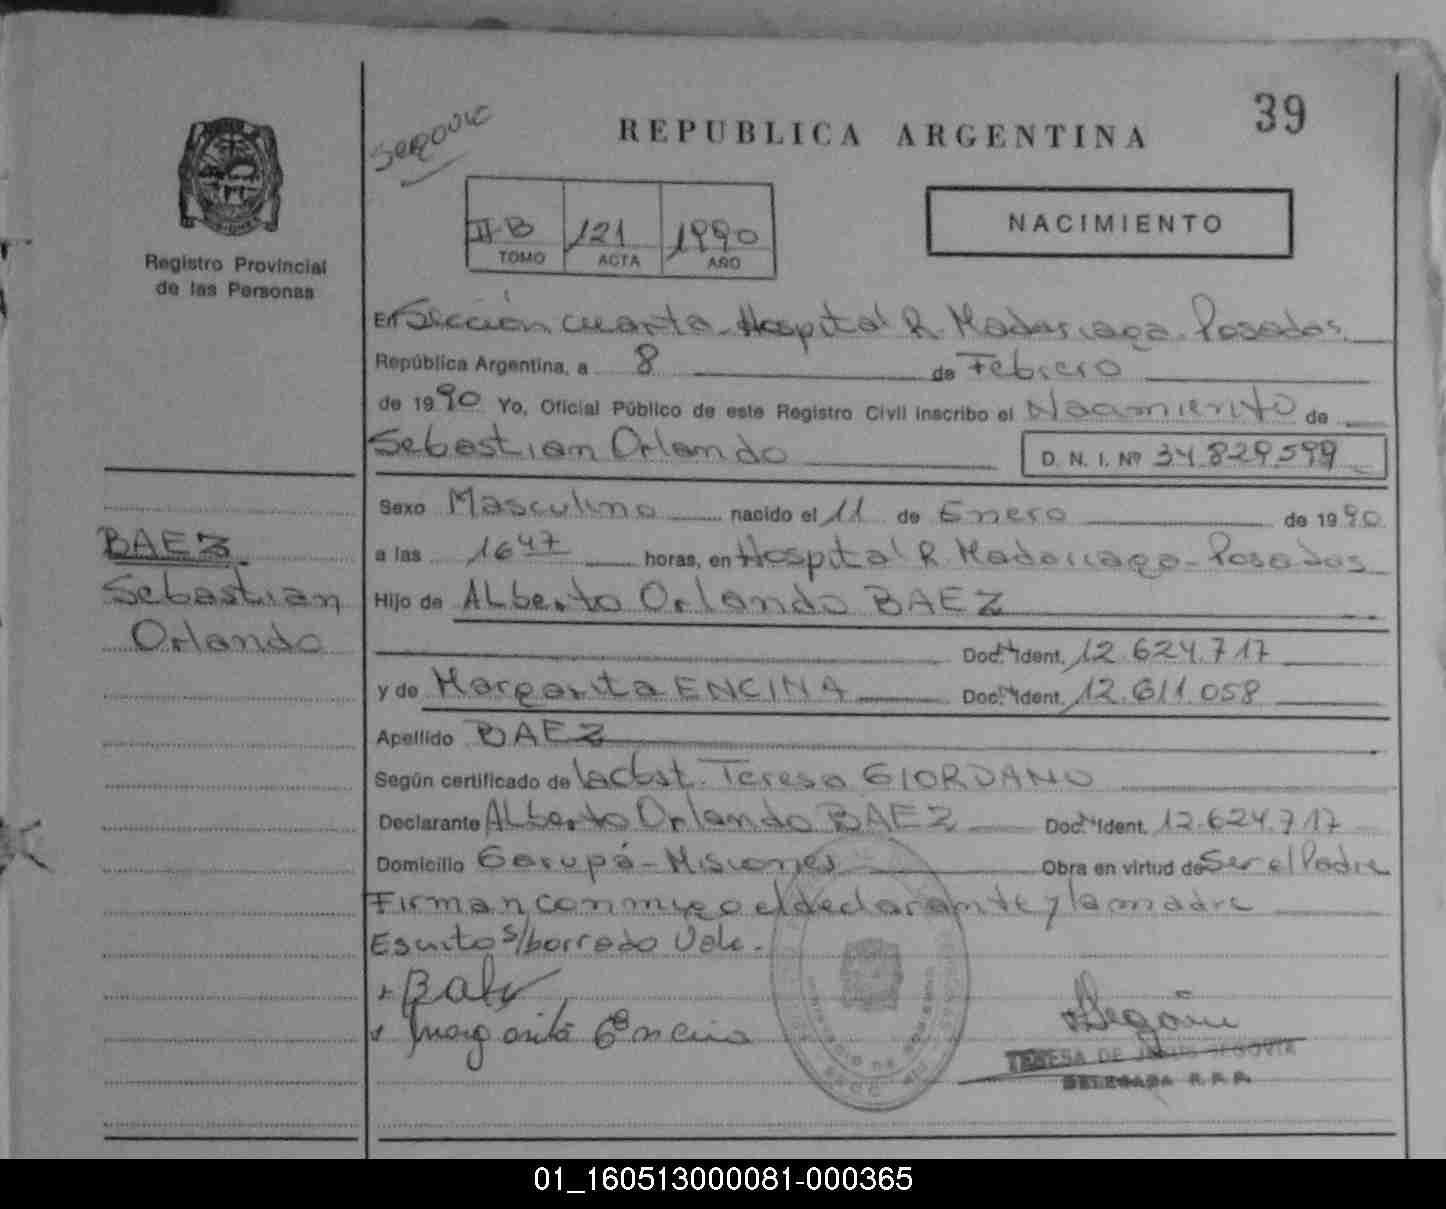 39
SEGOVIC
REPUBLICA ARGENTINA
NACIMIENTO
II-B 121 1990
TOMO ACTA AÑO
Registro Provincial
de las Personas
En Sección cuarta - Hospital R. Madariaga - Posadas.
República Argentina, a 8 de Febrero
de 1990 Yo, Oficial Público de este Registro Civil inscribo el Nacimiento de
Sebastian Orlando D. N. I. Nº 34.829.599
Sexo Masculino nacido el 11 de Enero de 1990
a las 1647 horas, en Hospital R. Madariaga - Posadas
BAEZ
Sebastian
Orlando
Hijo de Alberto Orlando BAEZ
Doc. Ident. 12.624.717
y de Margarita ENCINA Doc. Ident. 12.611.058
Apellido BAEZ
Según certificado de la Obst. Teresa GIORDANO
Declarante Alberto Orlando BAEZ Doc. Ident. 12.624.717
Domicilio Garupá - Misiones Obra en virtud de Ser el Padre
Firman conmigo el declarante y la madre
Escrito s/borrado Vale.
Margarita Encina
TERESA DE JESUS SEGOVIA
DELEGADA R.P.P.
01_160513000081-000365